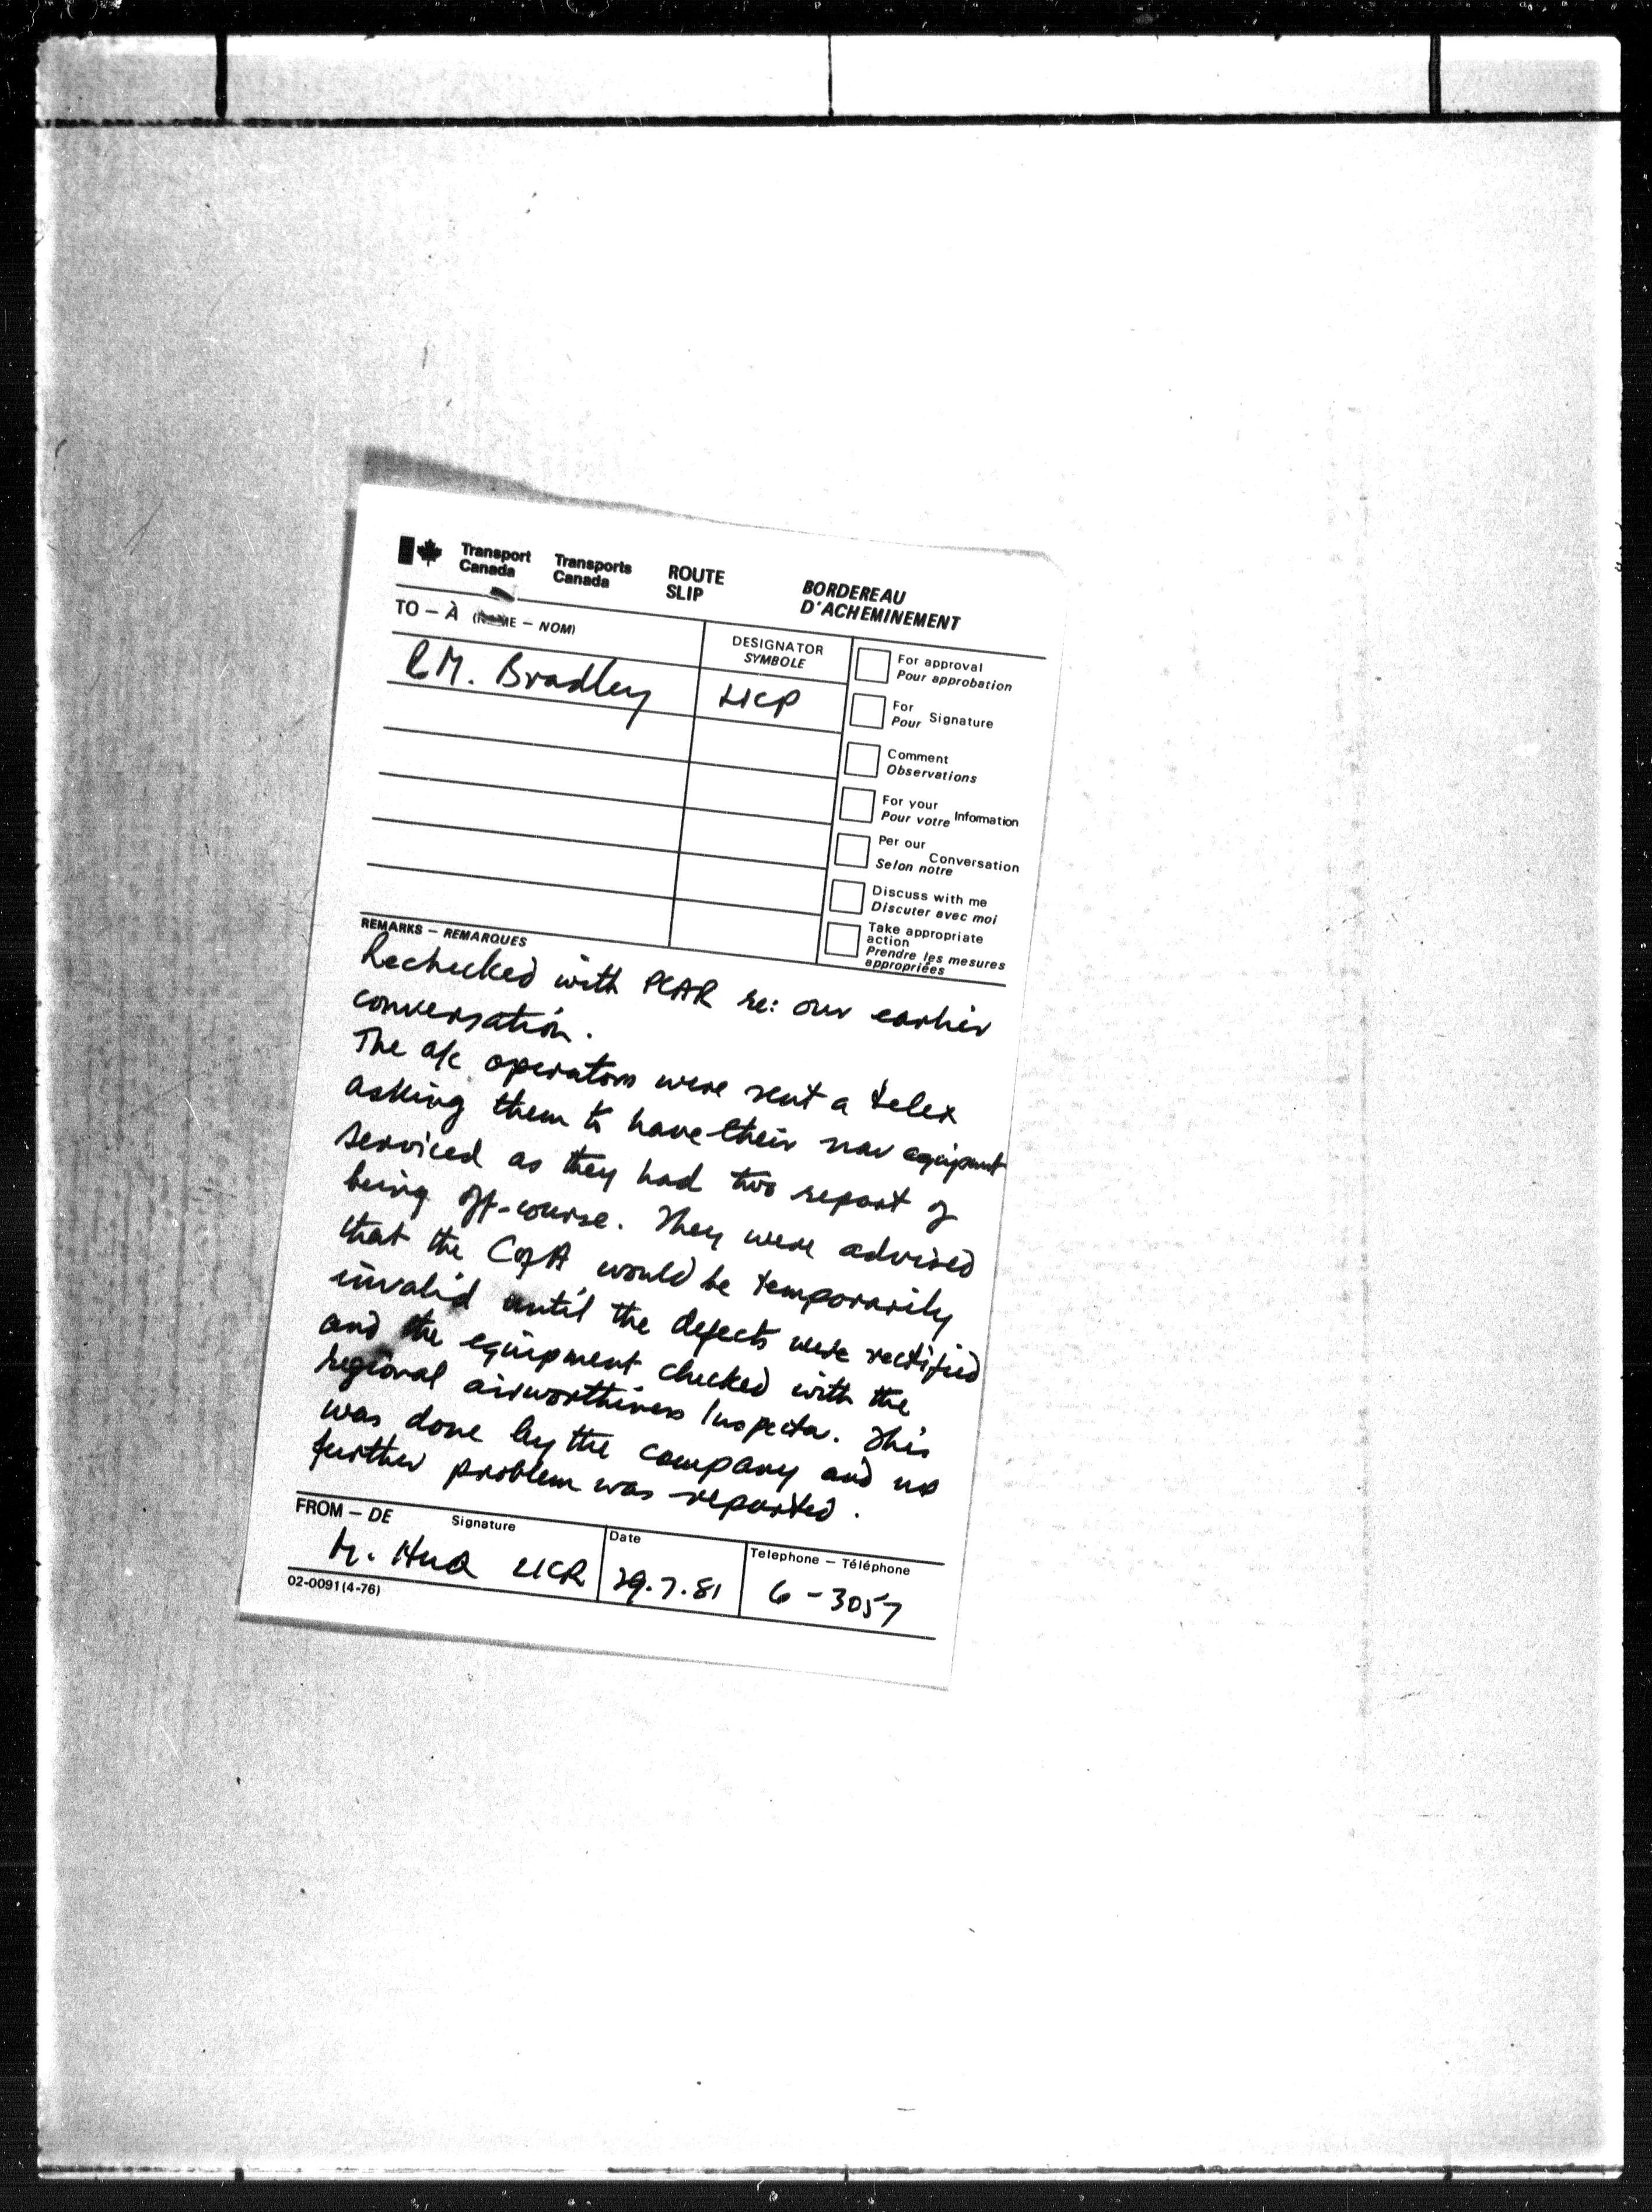 Transport Canada Transports Canada ROUTE SLIP BORDEREAU D'ACHEMINEMENT
TO – À (NAME – NOM)
DESIGNATOR
SYMBOLE
M. Bradley
For approval
Pour approbation
For Pour Signature
Comment
Observations
For your Pour votre Information
Per our Selon notre Conversation
Discuss with me
Discuter avec moi
Take appropriate action
Prendre les mesures appropriées
REMARKS – REMARQUES
Rechecked with PCAR re: our earlier
conversation.
The a/c operators were sent a telex
asking them to have their nav equipment
serviced as they had two report of
being off-course. They were advised
that the CofA would be temporarily
invalid until the defects were rectified
and the equipment checked with the
regional airworthiness Inspector. This
was done by the company and no
further problem was reported.
FROM – DE Signature
Date
Telephone – Téléphone
M. Huq
29.7.81
6-3057
02-0091 (4-76)